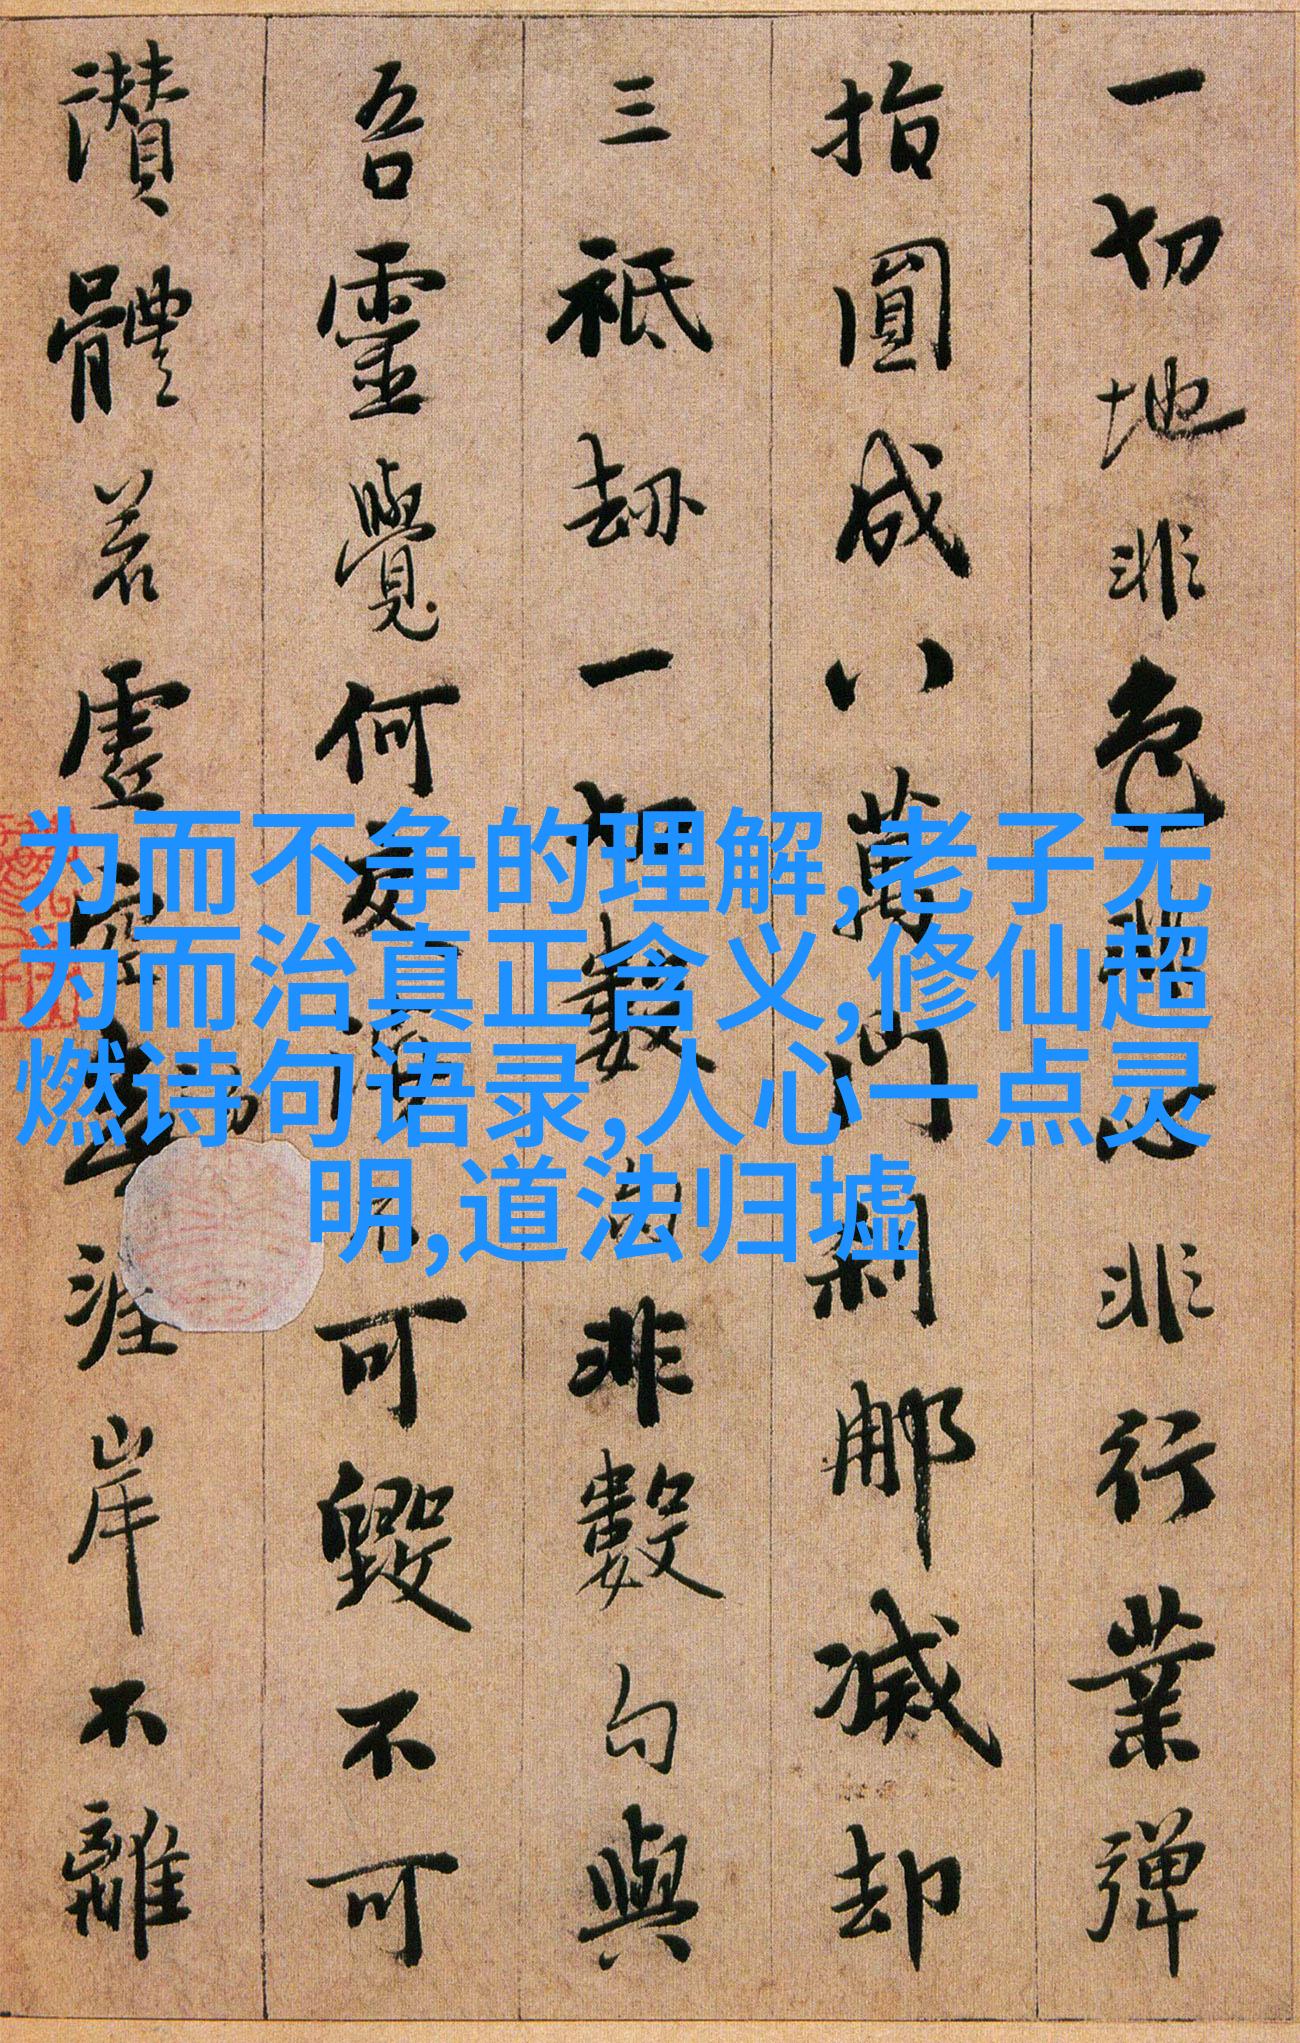 一切地非色非心非行業彈
指圓成八萬門剎那滅却
三祇劫一切數句非數句與
吾靈覺何交不可毀不可
讚體若虛空勿涯岸不離
为而不争的理解,老子无
为而治真正含义,修仙超
燃诗句语录,人心一点灵
明,道法归墟